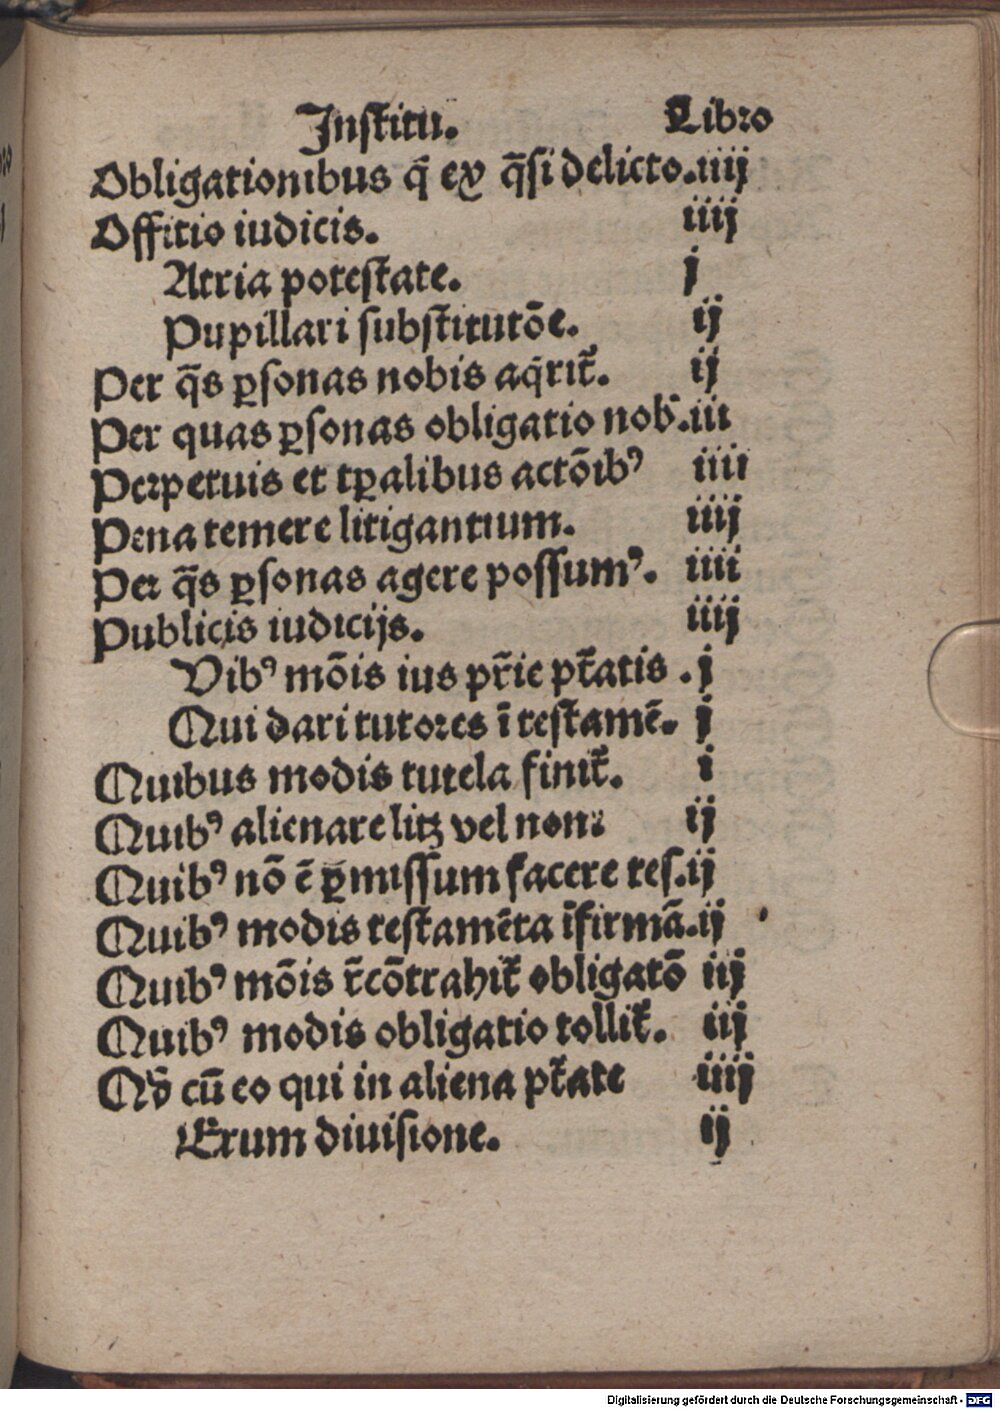 Institu. Libro
Obligationibus q̄ ex q̄si delicto. iiij
Offitio iudicis. iiij
Atria potestate. j
Pupillari substitutōe. ij
Per q̄s ꝑsonas nobis aq̄rit᷑. ij
Per quas ꝑsonas obligatio nob̾. iii
Perpetuis et tꝑalibus actōibꝰ iiii
Pena temere litigantium. iiij
Per q̄s ꝑsonas agere possumꝰ. iiii
Publicis iudicijs. iiij
Vibꝰ mōis ius pr̄ie pt̄atis . j
Qui dari tutores ī testamē. j
Quibus modis tutela finit᷑. i
Quibꝰ alienare litꝫ vel non: ij
Quibꝰ nō ē ꝑmissum facere tes. ij
Quibꝰ modis testamēta īfirmā. ij
Quibꝰ mōis r̄cōtrahit᷑ obligatō iij
Quibꝰ modis obligatio tollit᷑. iij
Qd̄ cū eo qui in aliena pt̄ate iiij
Erum diuisione. ij
Digitalisierung gefördert durch die Deutsche Forschungsgemeinschaft - DFG